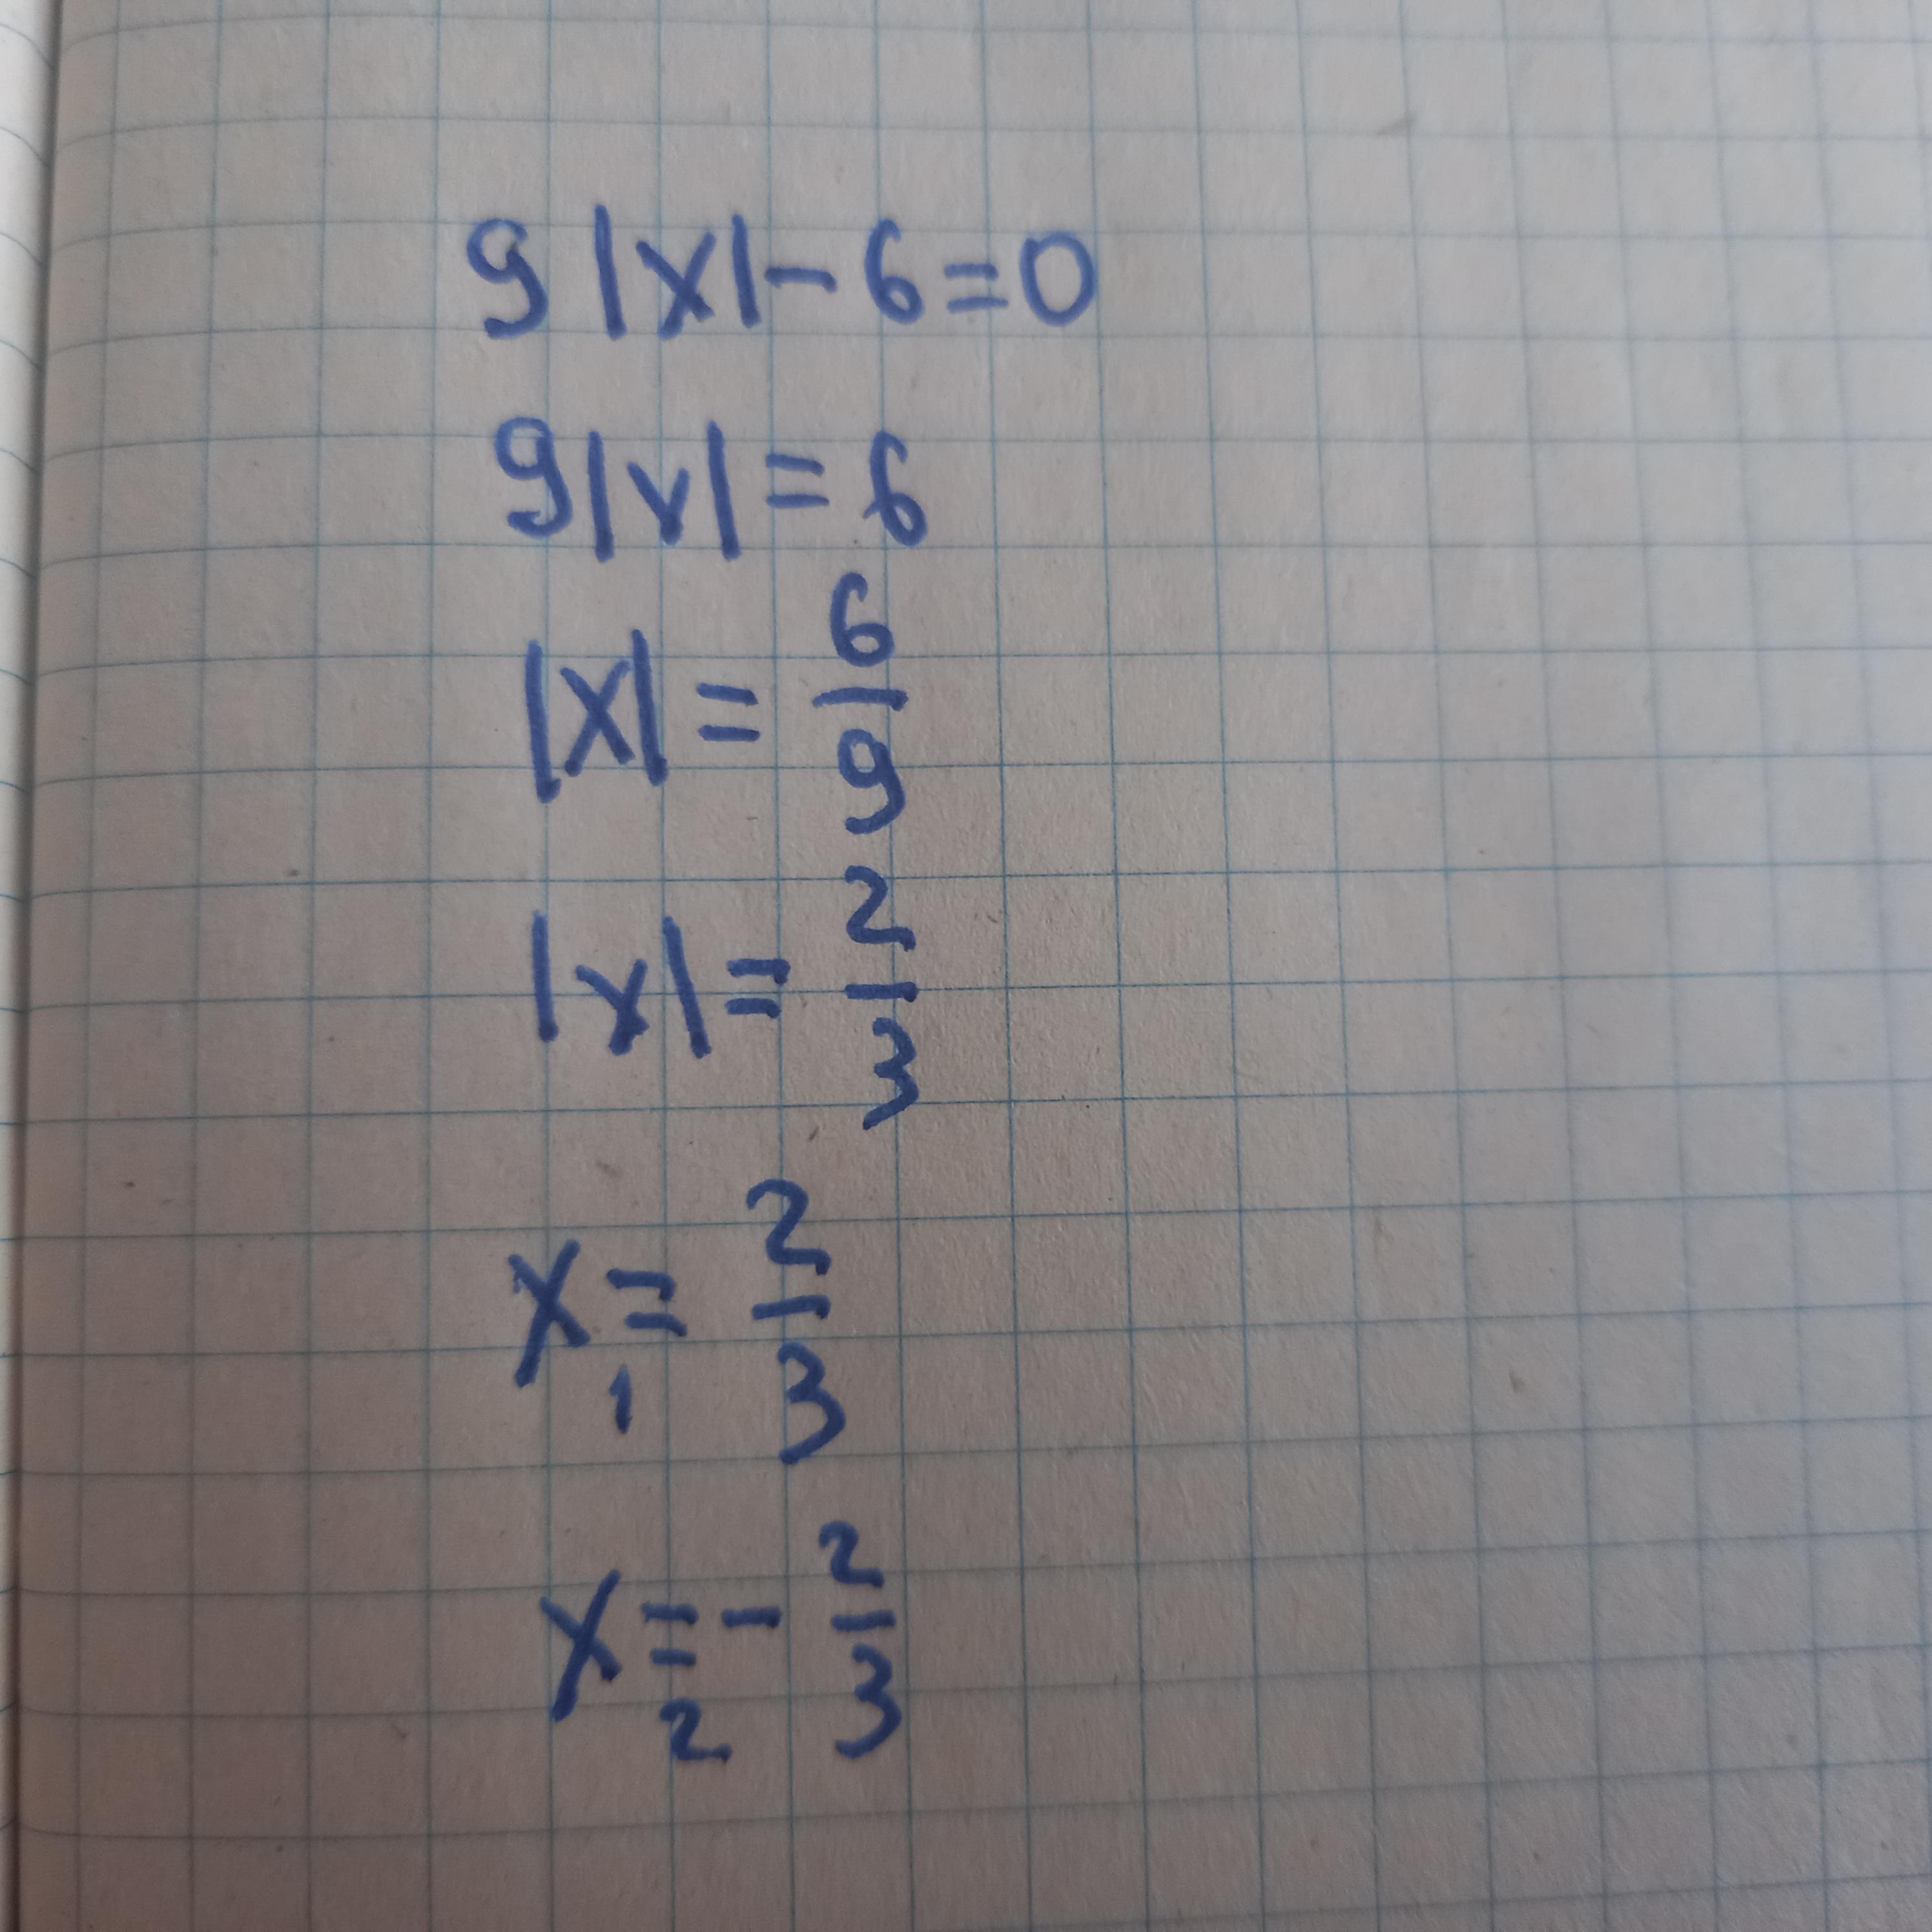 9|x|-6=0
9|x|=6
|x|=6/9
|x|=2/3
x₁=2/3
x₂=-2/3